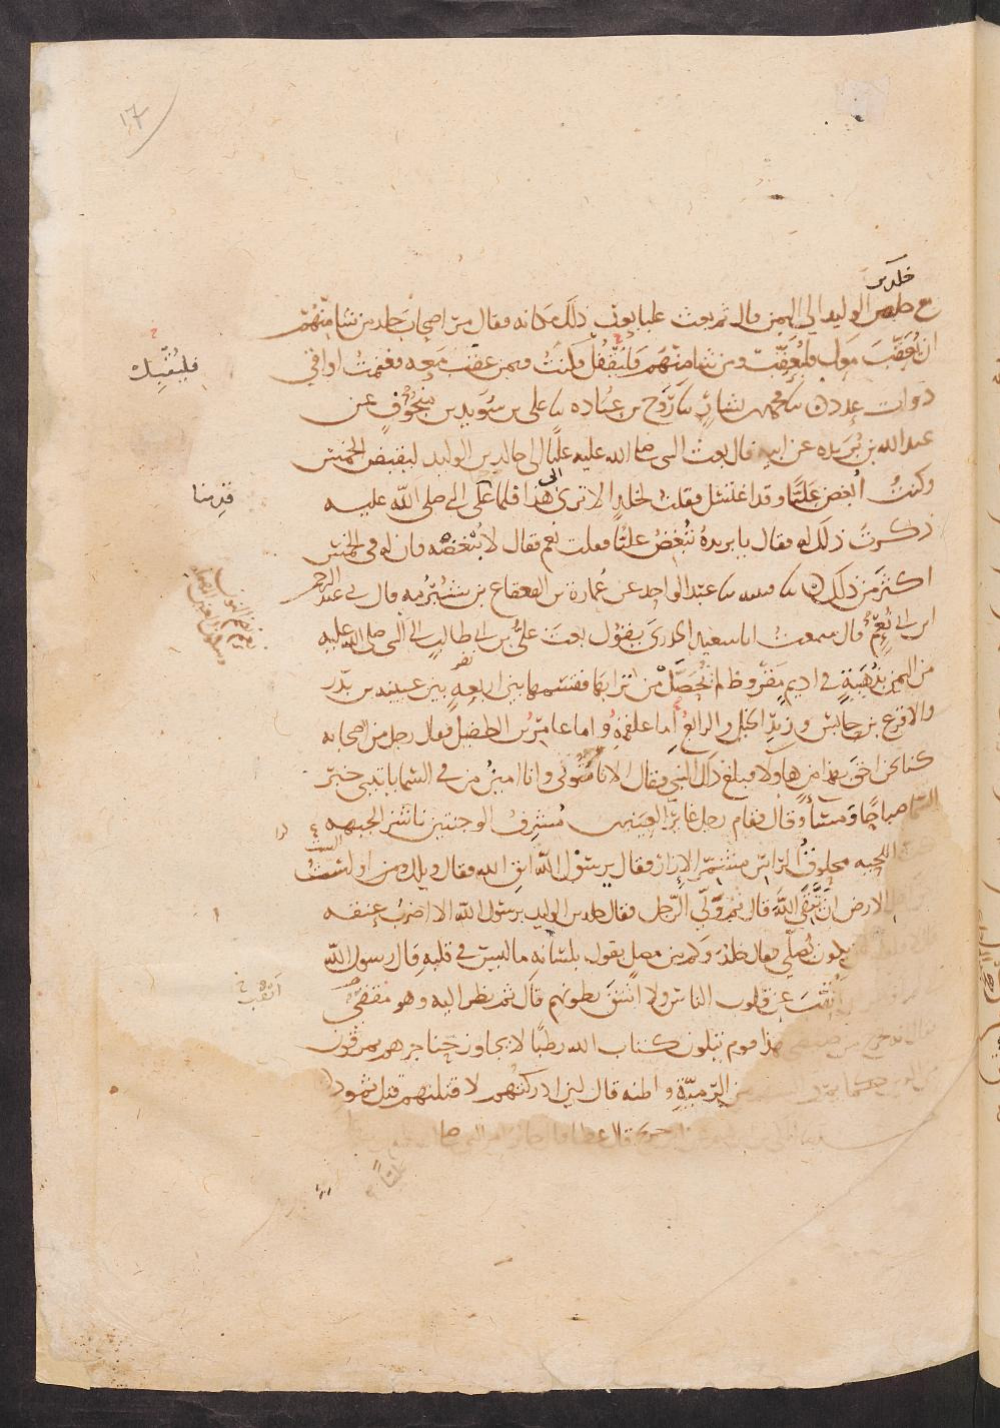 ١٧
خلد بن
مع خلد بن الوليد الى اليمن قال ثم بعث عليا بعد ذلك مكانه فقال مر اصحاب خلد من شا منهم
ان يُعقّبَ معك فليُعقّب ومن شا منهم فليقفل فكنتُ فيمن عقب معه فغنمتُ اواقي
فليُقبِل
ذوات عدد ما محمد بن بشار ما رَوح بن عباده ما على بن سُوَيد بن منجُوفٍ عن
عبد الله بن بُرَيده عن ابيه قال بعث النبى صلى الله عليه عليًّا الى خالد بن الوليد ليقبض الخمس
وكنتُ أُبغض عَليًّا وقد اغتسل فقلت لخلدٍ الا ترى الى هذا فلما على النبى صلى الله عليه
قدمنا
ذكرتُ ذلك له فقال يا بريدهُ تُبغضُ عليًّا فقلت نعم فقال لا تُبْغضْه فان له في الخمس
اكثر من ذلك ما قتيبه ما عبد الواحد عن عُمارة بن القعقاع بن شبُرُمه قال نى عبد الرحمن
ابن ابى نُعمٍ قال سمعتُ ابا سعيد الخدرىَ يقول بعث علىُّ بن ابى طالبٍ الى النبى صلى الله عليه
من اليمن بذُهَيبةٍ في اديمٍ مقروظ لم تُحصَّل من ترابها فقسمها بين اربعه نفر بين عيينه بن بدر
والاقرع بن حابس وزيدِ الخيل والرابعُ اما علقمةُ واما عامرُ بن الطفيل فقال رجل من اصحابه
كنا نحن احق بهذا من هاولا فبلغ ذلك النبى فقال الا تامنونى وانا امينُ من فى السما ياتينى خبر
السما صباحًا ومسآءً قال فقام رجل غائر العينين مُشرف الوجنتين ناشز الجبهه
كث اللحيه محلوقُ الراس مشمّر الإزار فقال يرسول الله اتق الله فقال ويلك ومن اولستُ
احق اهل الارض ان يتقى الله قال ثم ولّى الرجل فقال خلد بن الوليد يرسول الله الا اضربُ عنقه
يكون يُصلّى فقال خلدٌ وكم من مصلٍ يقول بلسانه ما ليس في قلبه قال رسول الله
انقُبَ عن قلوب الناس ولا اشقَ بطونهم قال ثم نظر اليه وهو مُقفّى
انقب
هذا قوم يتلون كتاب الله رطبًا لا يجاوز حناجرهم يمرقون
من الرميّةِ واظنه قال لئن ادركتهم لا قتلنهم قتل ثمود
عليًّا